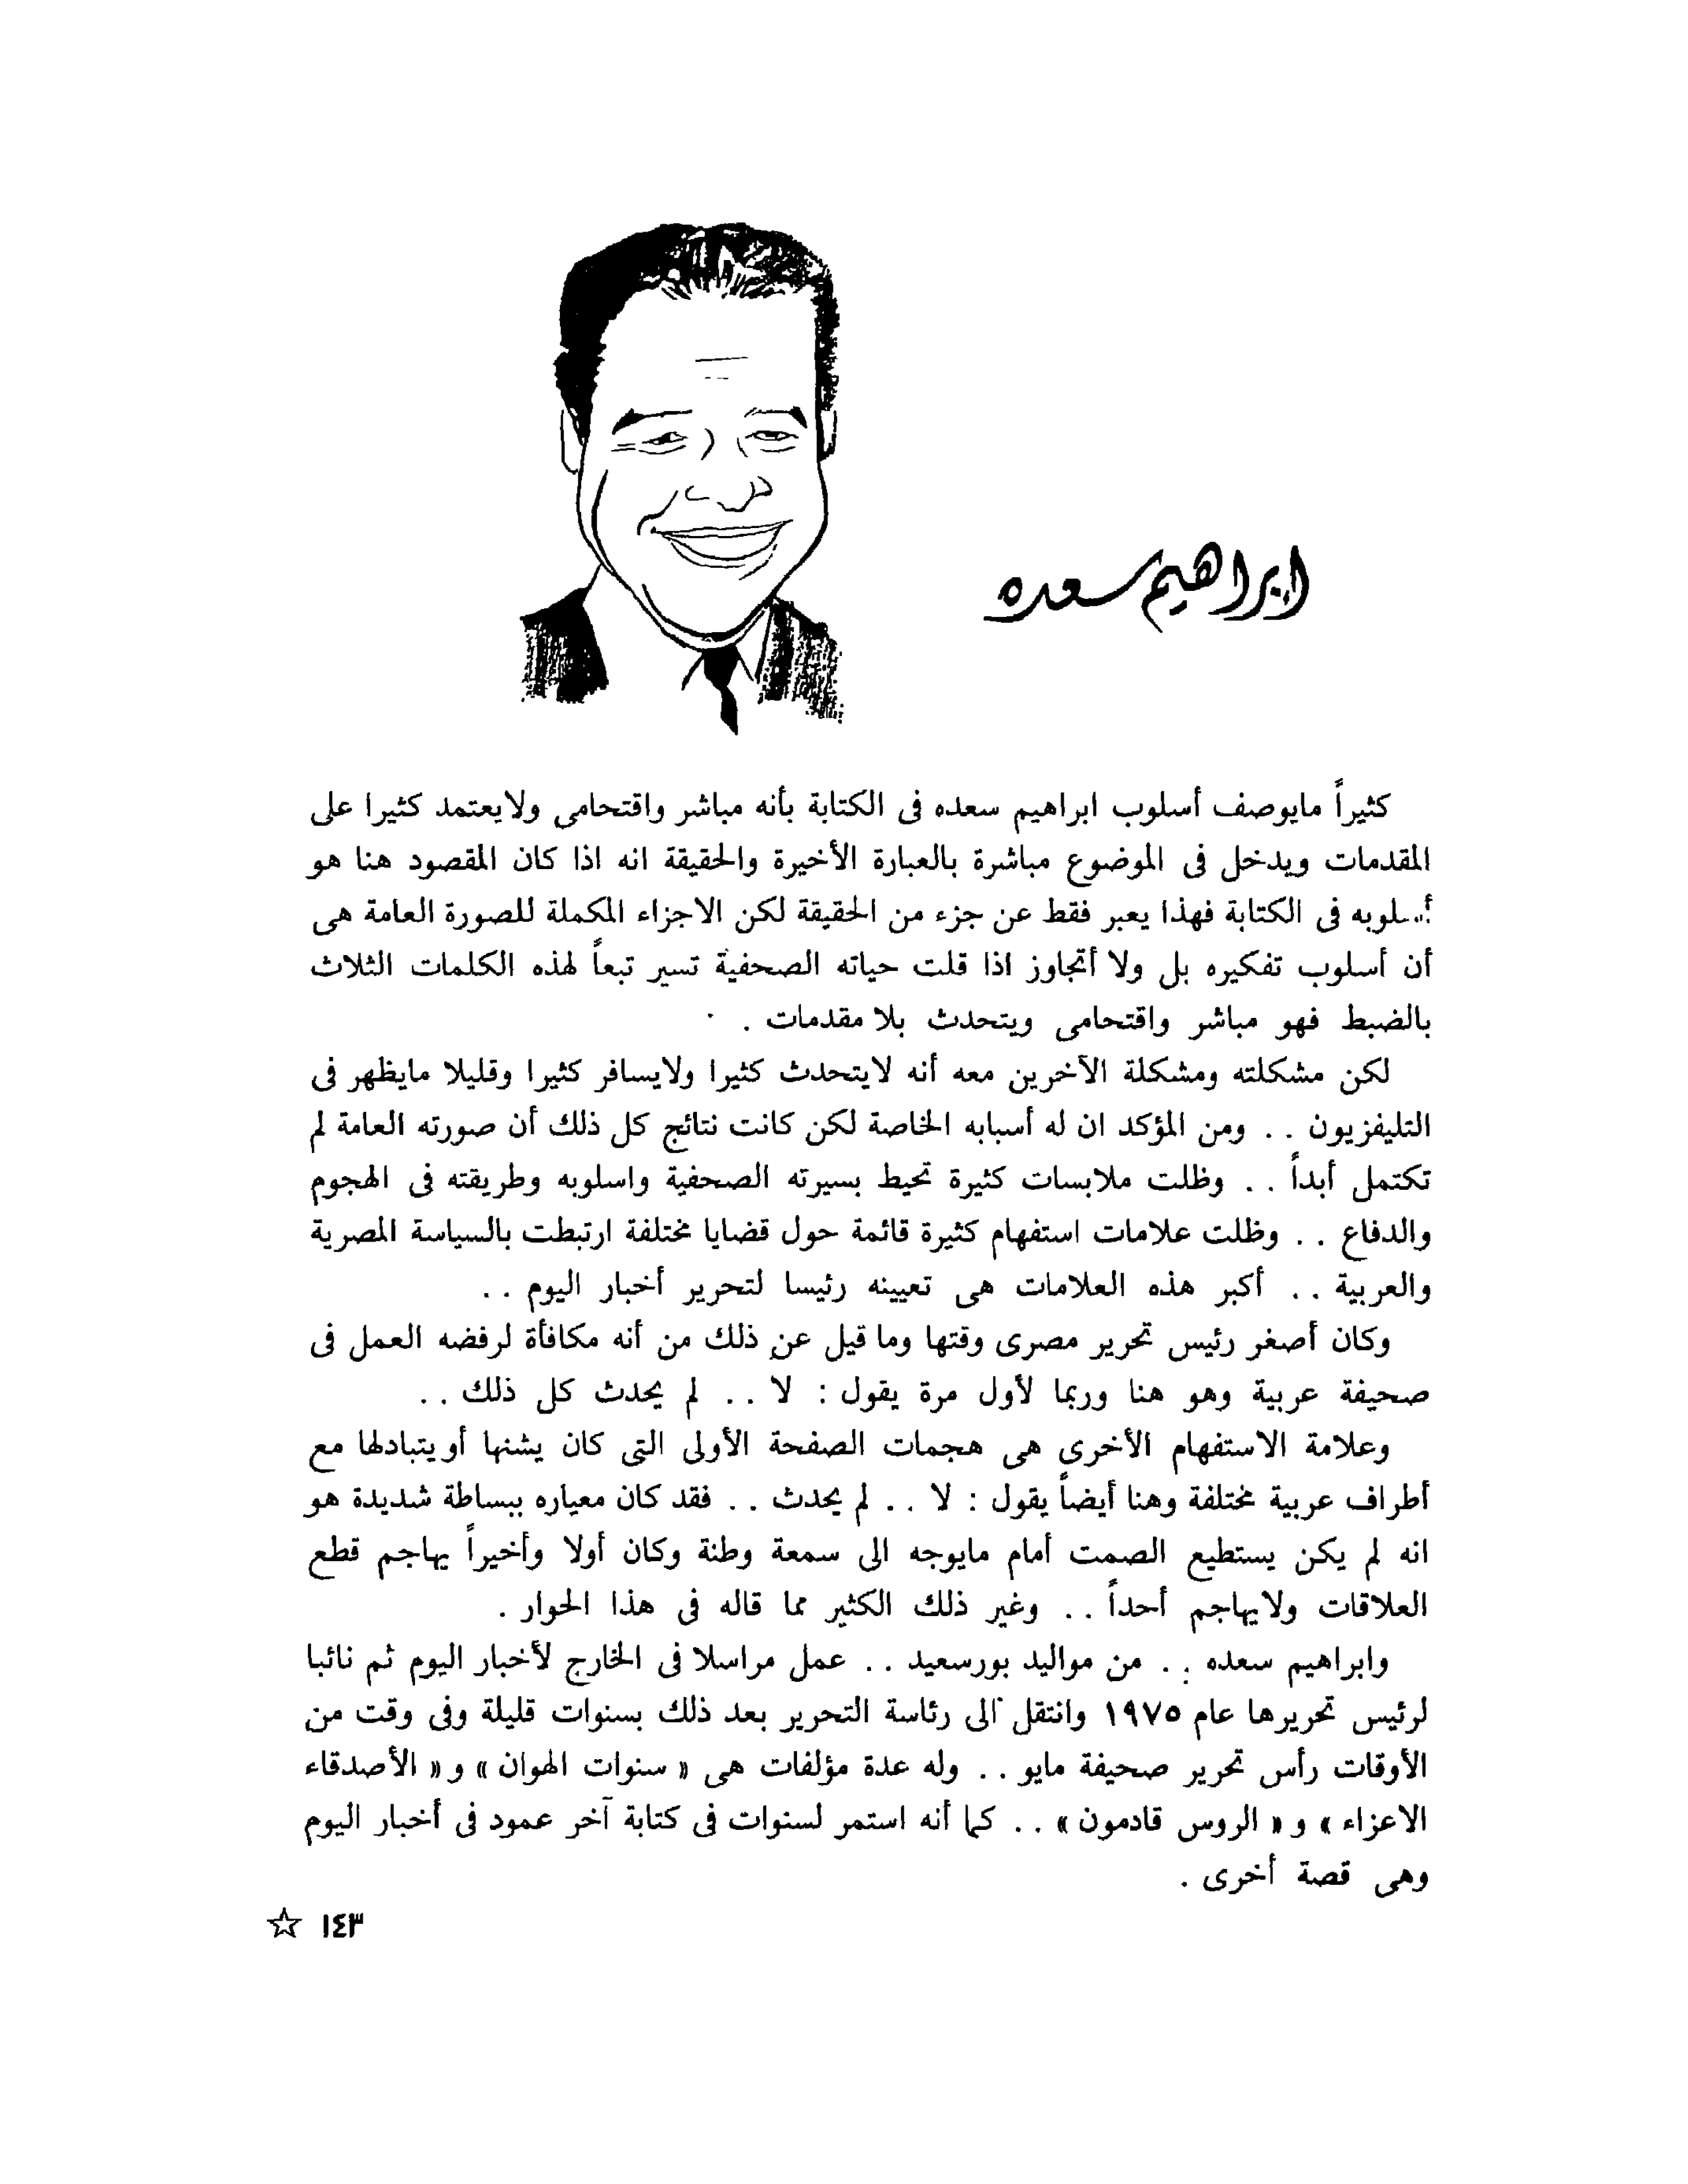 إبراهيم سعده
كثيراً مايوصف أسلوب ابراهيم سعده فى الكتابة بأنه مباشر واقتحامى ولايعتمد كثيرا على
المقدمات ويدخل فى الموضوع مباشرة بالعبارة الأخيرة والحقيقة انه اذا كان المقصود هنا هو
أسلوبه فى الكتابة فهذا يعبر فقط عن جزء من الحقيقة لكن الاجزاء المكملة للصورة العامة هى
أن أسلوب تفكيره بل ولا أتجاوز اذا قلت حياته الصحفية تسير تبعاً لهذه الكلمات الثلاث
بالضبط فهو مباشر واقتحامى ويتحدث بلا مقدمات .
لكن مشكلته ومشكلة الآخرين معه أنه لايتحدث كثيرا ولايسافر كثيرا وقليلا مايظهر فى
التليفزيون . . ومن المؤكد ان له أسبابه الخاصة لكن كانت نتائج كل ذلك أن صورته العامة لم
تكتمل أبداً . . وظلت ملابسات كثيرة تحيط بسيرته الصحفية واسلوبه وطريقته فى الهجوم
والدفاع . . وظلت علامات استفهام كثيرة قائمة حول قضايا مختلفة ارتبطت بالسياسة المصرية
والعربية . . أكبر هذه العلامات هى تعيينه رئيسا لتحرير أخبار اليوم . .
وكان أصغر رئيس تحرير مصرى وقتها وما قيل عن ذلك من أنه مكافأة لرفضه العمل فى
صحيفة عربية وهو هنا وربما لأول مرة يقول : لا . . لم يحدث كل ذلك . .
وعلامة الاستفهام الأخرى هى هجمات الصفحة الأولى التى كان يشنها أو يتبادلها مع
أطراف عربية مختلفة وهنا أيضاً يقول : لا . . لم يحدث . . فقد كان معياره ببساطة شديدة هو
انه لم يكن يستطيع الصمت أمام مايوجه الى سمعة وطنة وكان أولا وأخيراً يهاجم قطع
العلاقات ولايهاجم أحداً . . وغير ذلك الكثير مما قاله فى هذا الحوار .
وابراهيم سعده . . من مواليد بورسعيد . . عمل مراسلا فى الخارج لأخبار اليوم ثم نائبا
لرئيس تحريرها عام ١٩٧٥ وانتقل الى رئاسة التحرير بعد ذلك بسنوات قليلة وفى وقت من
الأوقات رأس تحرير صحيفة مايو . . وله عدة مؤلفات هى « سنوات الهوان » و « الأصدقاء
الاعزاء » و « الروس قادمون » . . كما أنه استمر لسنوات فى كتابة آخر عمود فى أخبار اليوم
وهى قصة أخرى .
١٤٣ ☆